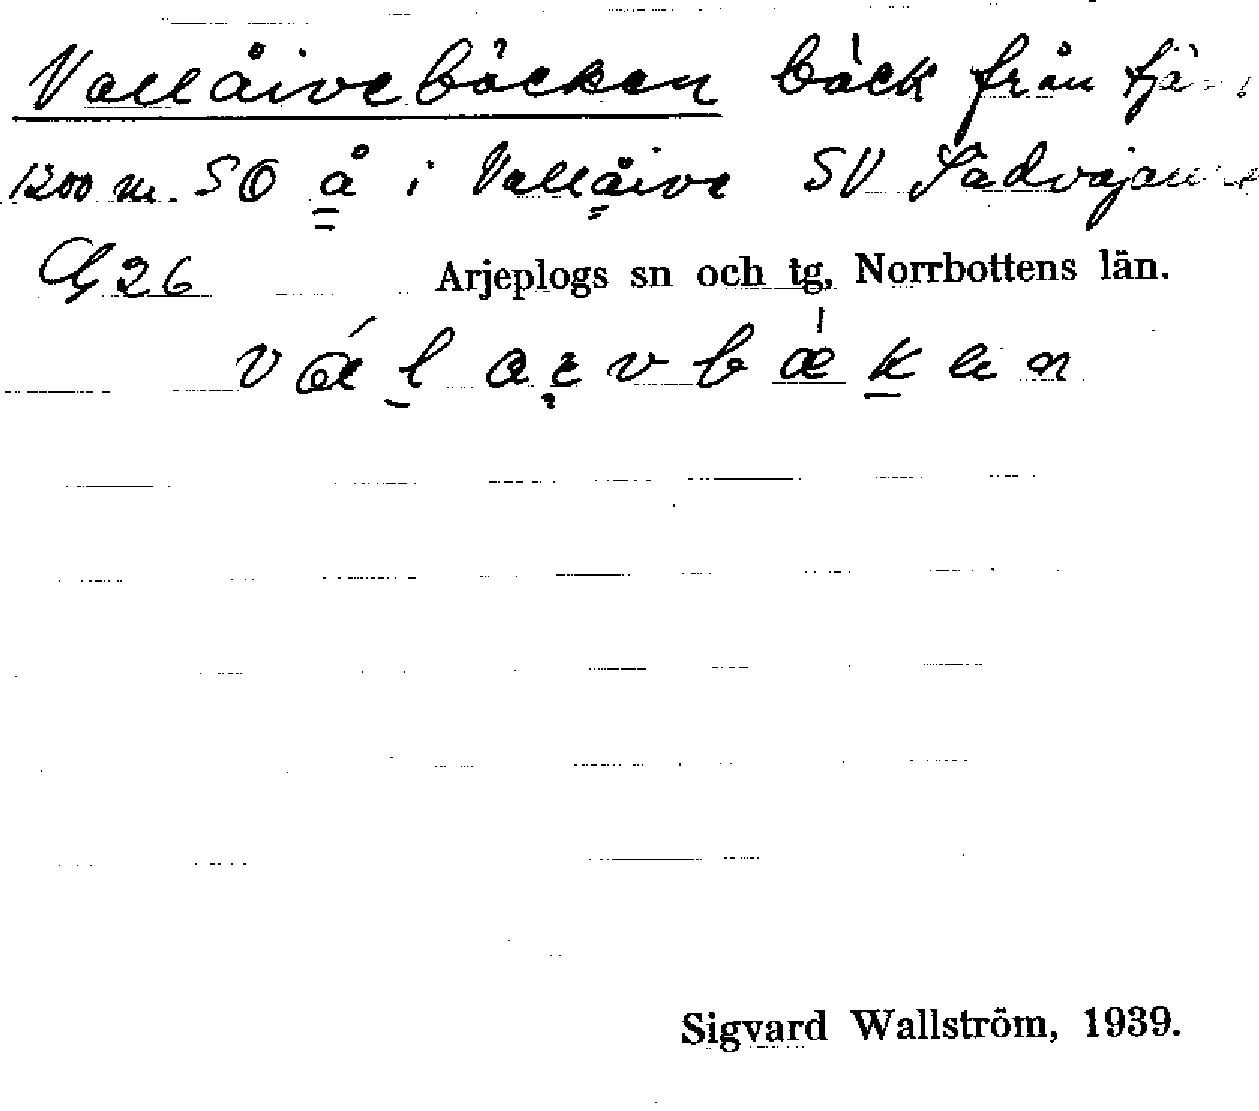 Vallåivebäcken bäck från
1200 m. SO å i Vallåive SV
G 26 Arjeplogs sn och tg, Norrbottens län.
Sigvard Wallström, 1939.